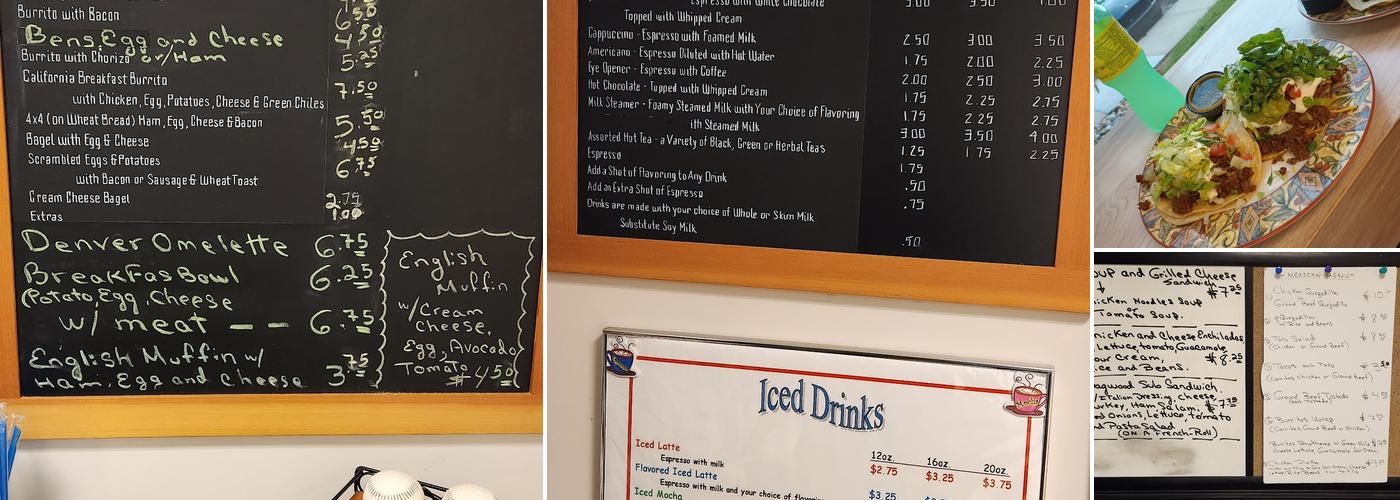 Burrito with Bacon
6.50
Bens, Egg and Cheese
4.50
Burrito with Chorizo or/Ham
5.25
California Breakfast Burrito
with Chicken, Egg, Potatoes, Cheese & Green Chiles
7.50
4x4 (on Wheat Bread) Ham, Egg, Cheese & Bacon
5.50
Bagel with Egg & Cheese
4.50
Scrambled Eggs & Potatoes
6.75
with Bacon or Sausage & Wheat Toast
Cream Cheese Bagel
2.75
Extras
1.00
Denver Omelette 6.75
BreakFasBowl 6.25
(Potato, Egg, Cheese
w/ meat -- 6.75
English Muffin w/
Ham, Egg and Cheese 3.75
English
Muffin
w/Cream
Cheese,
Egg, Avocado
Tomato
$4.50
Espresso with White Chocolate 3.00 3.50 4.00
Topped with Whipped Cream
Cappuccino - Espresso with Foamed Milk 2.50 3.00 3.50
Americano - Espresso Diluted with Hot Water 1.75 2.00 2.25
Eye Opener - Espresso with Coffee 2.00 2.50 3.00
Hot Chocolate - Topped with Whipped Cream 1.75 2.25 2.75
Milk Steamer - Foamy Steamed Milk with Your Choice of Flavoring 1.75 2.25 2.75
ith Steamed Milk 3.00 3.50 4.00
Assorted Hot Tea - a Variety of Black, Green or Herbal Teas 1.25 1.75 2.25
Espresso 1.75
Add a Shot of Flavoring to Any Drink .50
Add an Extra Shot of Espresso .75
Drinks are made with your choice of Whole or Skim Milk
Substitute Soy Milk .50
Iced Drinks
12oz. 16oz. 20oz.
Iced Latte $2.75 $3.25 $3.75
Espresso with milk
Flavored Iced Latte $3.25
Espresso with milk and your choice of
Iced Mocha
oup and Grilled Cheese
Sandwich $7.25
icken Noodles Soup
or
Tomato Soup.
hicken and Cheese Enchiladas
Lettuce, tomato, Guacamole
our Cream, $8.25
ice and Beans.
agwood Sub Sandwich.
/Italian Dressing, Cheese,
urkey, Ham, Salami, $7.75
d Onions, Lettuce, tomato
nd Pasta Salad
(ON A French-Roll)
MEXICAN MENU
Chicken Quesadilla
or
Ground Beef Quesadilla
Quesadilla
w/ Rice and Beans
Taco Salad
(Chicken or Ground Beef)
Tacos
(Carnitas chicken or Ground Beef)
Ground Beef Tostada
Burritos Wrap
(Carnitas Ground Beef or Chicken)